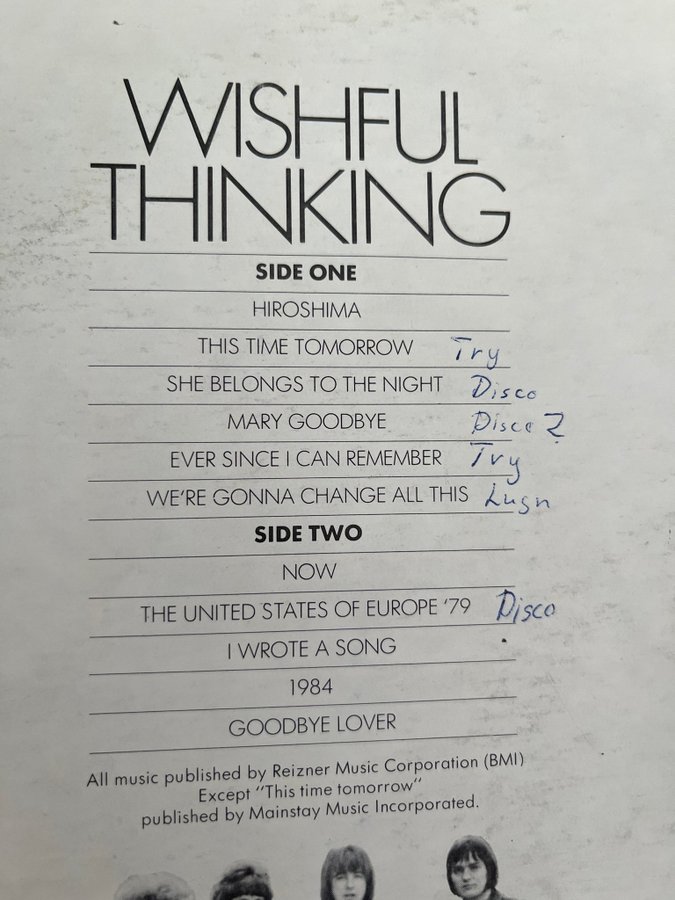 WISHFUL
THINKING
SIDE ONE
HIROSHIMA
THIS TIME TOMORROW Try
SHE BELONGS TO THE NIGHT Disco
MARY GOODBYE Disco ?
EVER SINCE I CAN REMEMBER Try
WE'RE GONNA CHANGE ALL THIS Lugn
SIDE TWO
NOW
THE UNITED STATES OF EUROPE '79 Disco
I WROTE A SONG
1984
GOODBYE LOVER
All music published by Reizner Music Corporation (BMI)
Except "This time tomorrow"
published by Mainstay Music Incorporated.